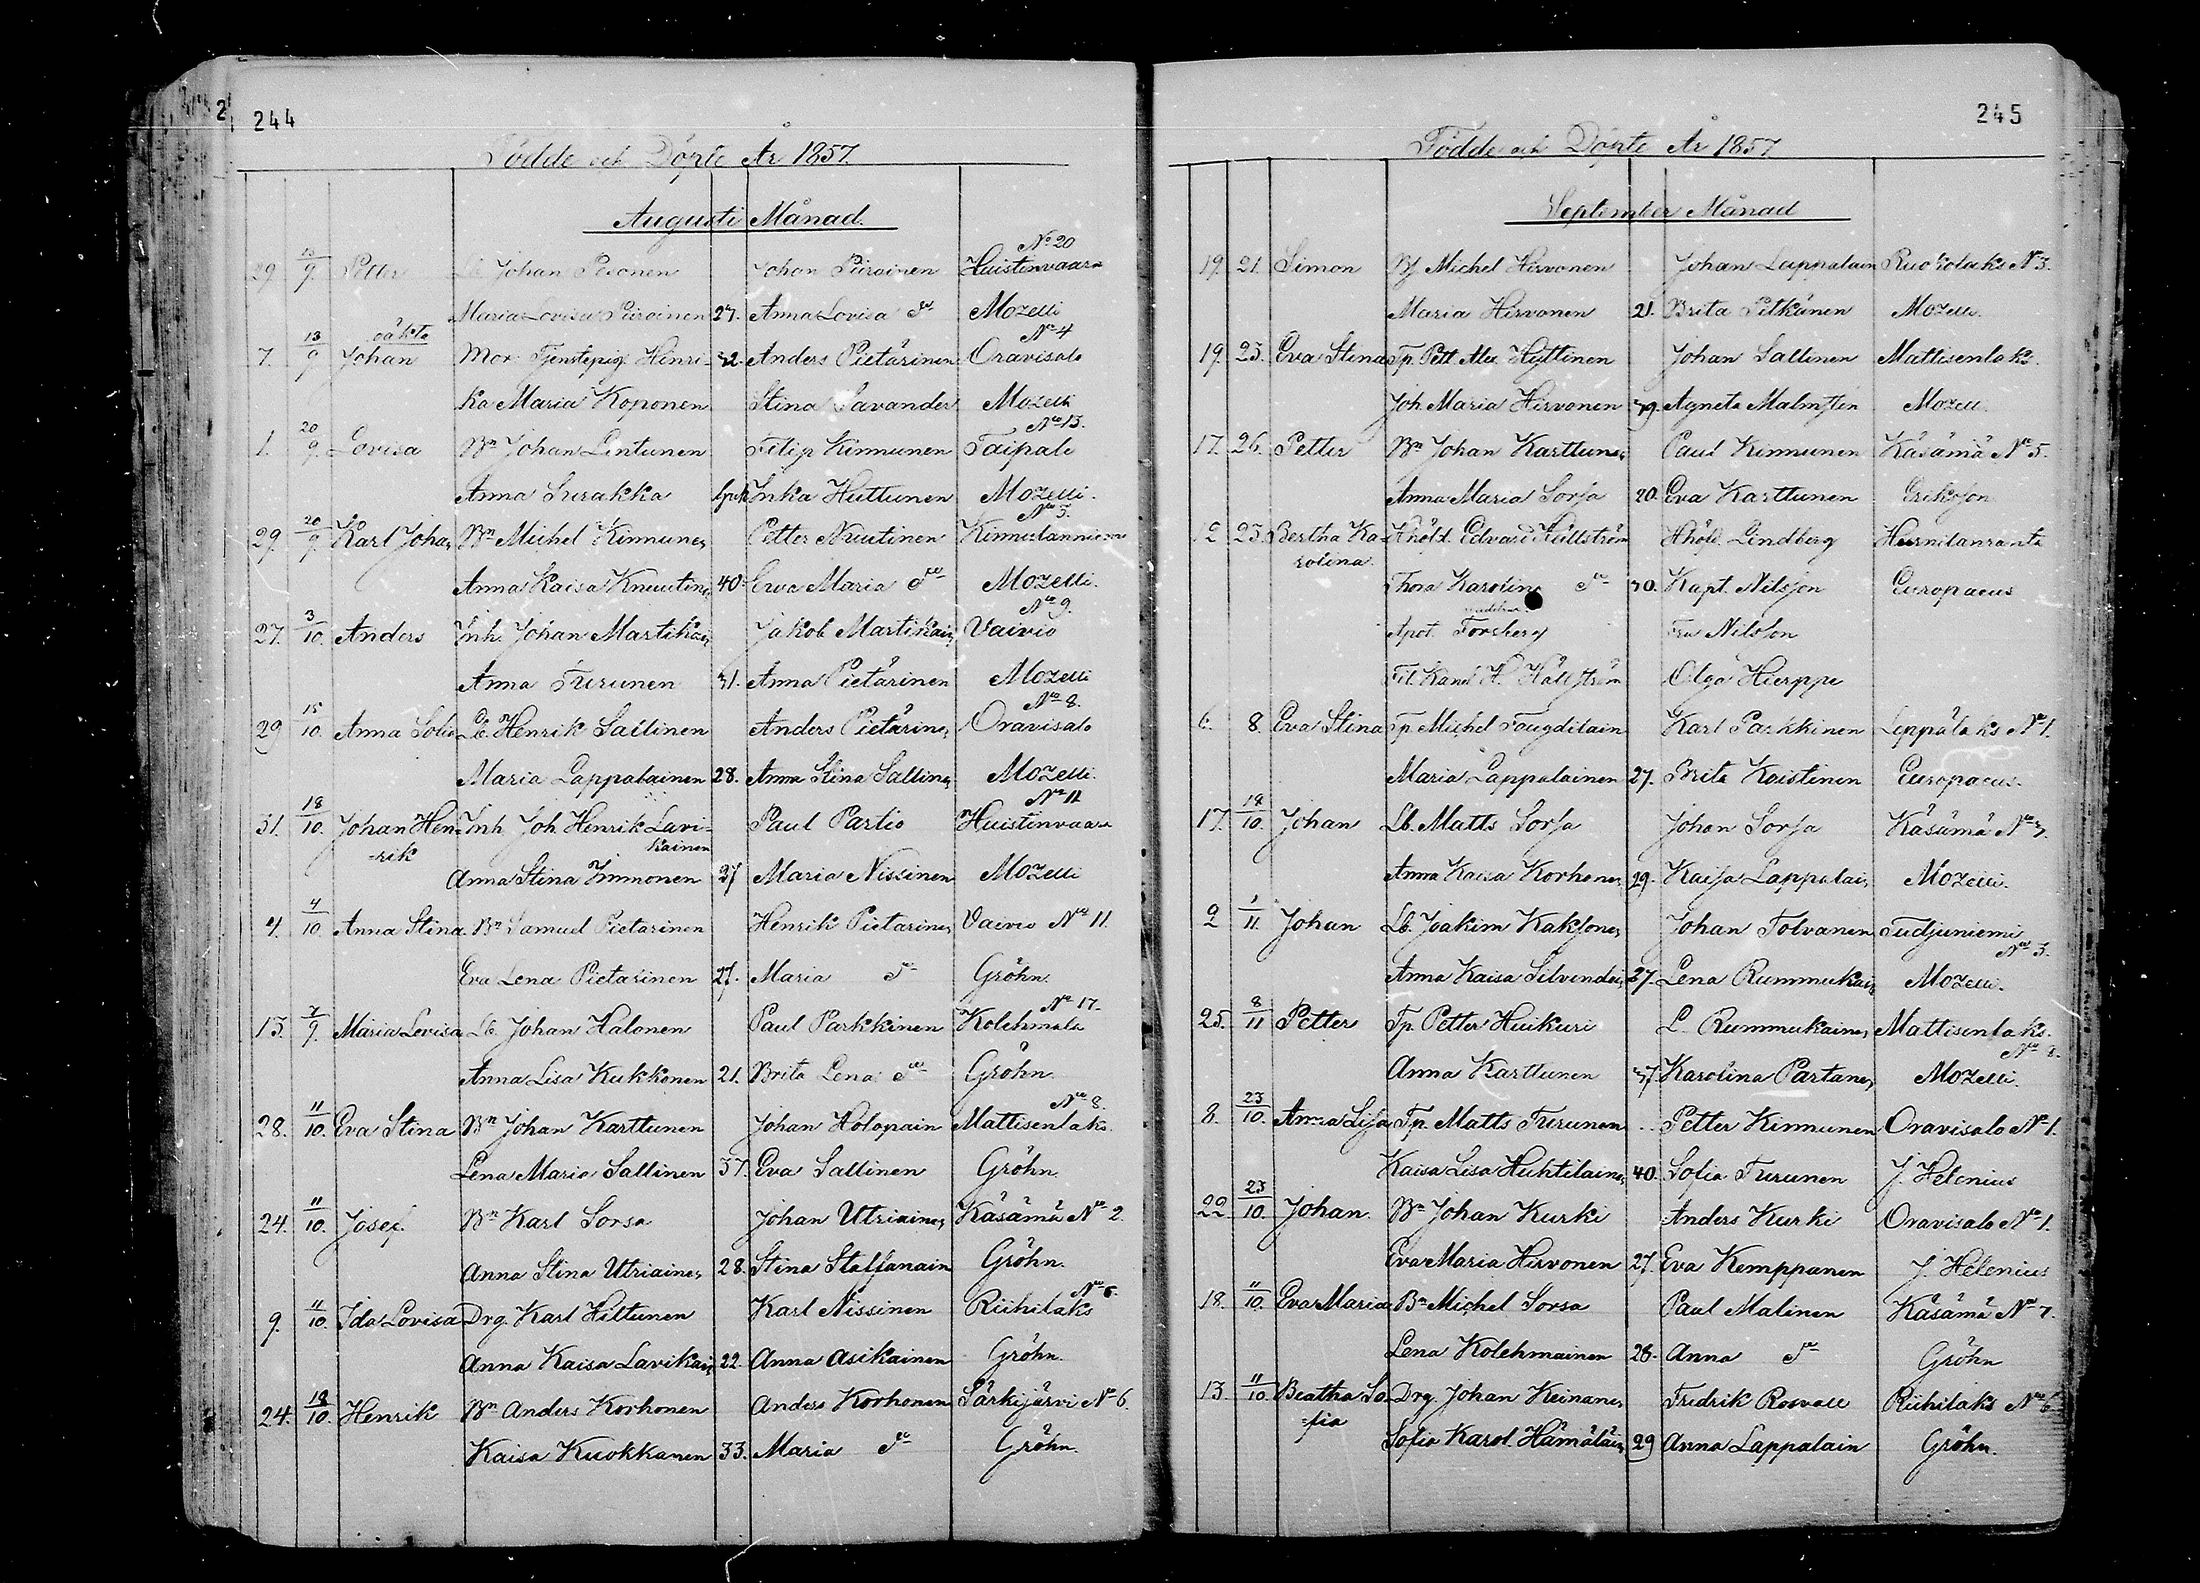 244
Födde och Döpte År 1857
Augusti Månad.
No 20
29 13/9. Petter Lb. Johan Pesonen Johan Piirainen Huistinvaara
Maria Lovisa Piirainen 27. Anna Lovisa Do Mozelli
No 4
oäkta
7. 13/9 Johan Mor. Tjenstepig. Henri- 32. Anders Pietärinen Oravisalo
ka Maria Koponen Stina Savander Mozelli
No 13.
1. 20/9. Lovisa Bn Johan Lintunen Filip Kinnunen Taipale
Anna Surakka Inka Huttunen Mozelli.
No 3.
29. 20/9. Karl Johan Bn Michel Kinnunen Petter Nuutinen Kinnulanniemi
Anna Kaisa Knuutinen 40. Eva Maria Do Mozelli.
No 9.
27. 3/10 Anders Inh. Johan Martikain Jakob Martikain Vaivio
Anna Turunen 31. Anna Pietärinen Mozelli
No 8.
29 15/10. Anna Sofia Lb. Henrik Sallinen Anders Pietärinen Oravisalo
Maria Lappalainen 28. Anna Stina Sallinen Mozelli.
No 11
31. 18/10. Johan Hen- Inh. Joh. Henrik Lavi- Paul Partio Huistinvaara
-rik kainen
Anna Stina Immonen 37 Maria Nissinen Mozelli
4. 4/10. Anna Stina Bn Samuel Pietarinen Henrik Pietarinen Vaivio No 11.
Eva Lena Pietarinen 27. Maria Do Gröhn.
No 17.
13. 7/9. Maria Lovisa Lb. Johan Halonen Paul Parkkinen Kolehmala
Anna Lisa Kukkonen 21. Brita Lena Do Gröhn.
No 8.
28. 11/10. Eva Stina Bn Johan Karttunen Johan Holopain Mattisenlaks.
Lena Maria Sallinen 37. Eva Sallinen Gröhn.
24. 11/10. Josef. Bn Karl Sorsa Johan Utriainen Käsämä No 2.
Anna Stina Utriainen 28. Stina Staffanain Gröhn.
No 6.
9. 11/10. Ida Lovisa Drg. Karl Hiltunen Karl Nissinen Riihilaks
Anna Kaisa Lavikain 22. Anna Asikainen Gröhn.
24. 18/10. Henrik Bn Anders Korhonen Anders Korhonen Särkijärvi No 6.
Kaisa Kuokkanen 33. Maria Do Gröhn.
245
Födde och Döpte År 1857
September Månad
19. 21. Simon Bf Michel Hirvonen Johan Lappalain Ruokolaks No 3.
Maria Hirvonen 21. Brita Pitkänen Mozelli.
19. 23. Eva Stina Tp. Pett. Alex. Hyttinen Johan Sallinen Mattisenlaks.
Joh. Maria Hirvonen 39. Agneta Malmsten Mozell.
17. 26. Petter Bn Johan Karttunen Paul Kinnunen Käsämä No 5.
Anna Maria Sorsa 20. Eva Karttunen Eriksson
12 23. Bertha Ka- Edvard Hällström Lindberg Hernilanranta
rolina.
Thora Karolina Do 30. Kapt. Nilsson Europaeus
Apot. Forsberg Fru Nilsson
Fil. Kand. H. Hällström Olga Hierppe
6. 8. Eva Stina Tp Michel Fougdilain Karl Parkkinen Leppälaks No 1.
Maria Lappalainen 27. Brita Koistinen Europaeus.
17. 18/10. Johan Lb. Matts Sorsa Johan Sorsa Käsämä No 7.
Anna Kaisa Korhonen 29. Kaisa Lappalain Mozelli.
2 1/11. Johan Lb. Joakim Kaksonen Johan Tolvanen Tudjuniemi
No 3.
Anna Kaisa Silvendoin 27. Lena Rummukain Mozelli.
25. 8/11 Petter Tp. Petter Huikuri L. Rummukainen Mattisenlaks.
Anna Karttunen 37. Karolina Partanen Mozelli.
8. 23/10. Anna Lisa Tp. Matts Turunen Petter Kinnunen Oravisalo No 1.
Kaisa Lisa Huhtilainen 40. Sofia Turunen J. Helenius
22. 23/10. Johan. Bn Johan Kurki Anders Kurki Oravisalo No 1.
Eva Maria Hirvonen 27. Eva Kemppanen J. Helenius
18. 11/10. Eva Maria Bn Michel Sorsa Paul Malinen Käsämä No 7.
Lena Kolehmainen 28. Anna Do Gröhn
13. 11/10. Beatha So- Drg. Johan Keinanen Fredrik Rosvall Riihilaks No 6
-fia
Sofia Karol. Hämäläin 29 Anna Lappalain Gröhn.